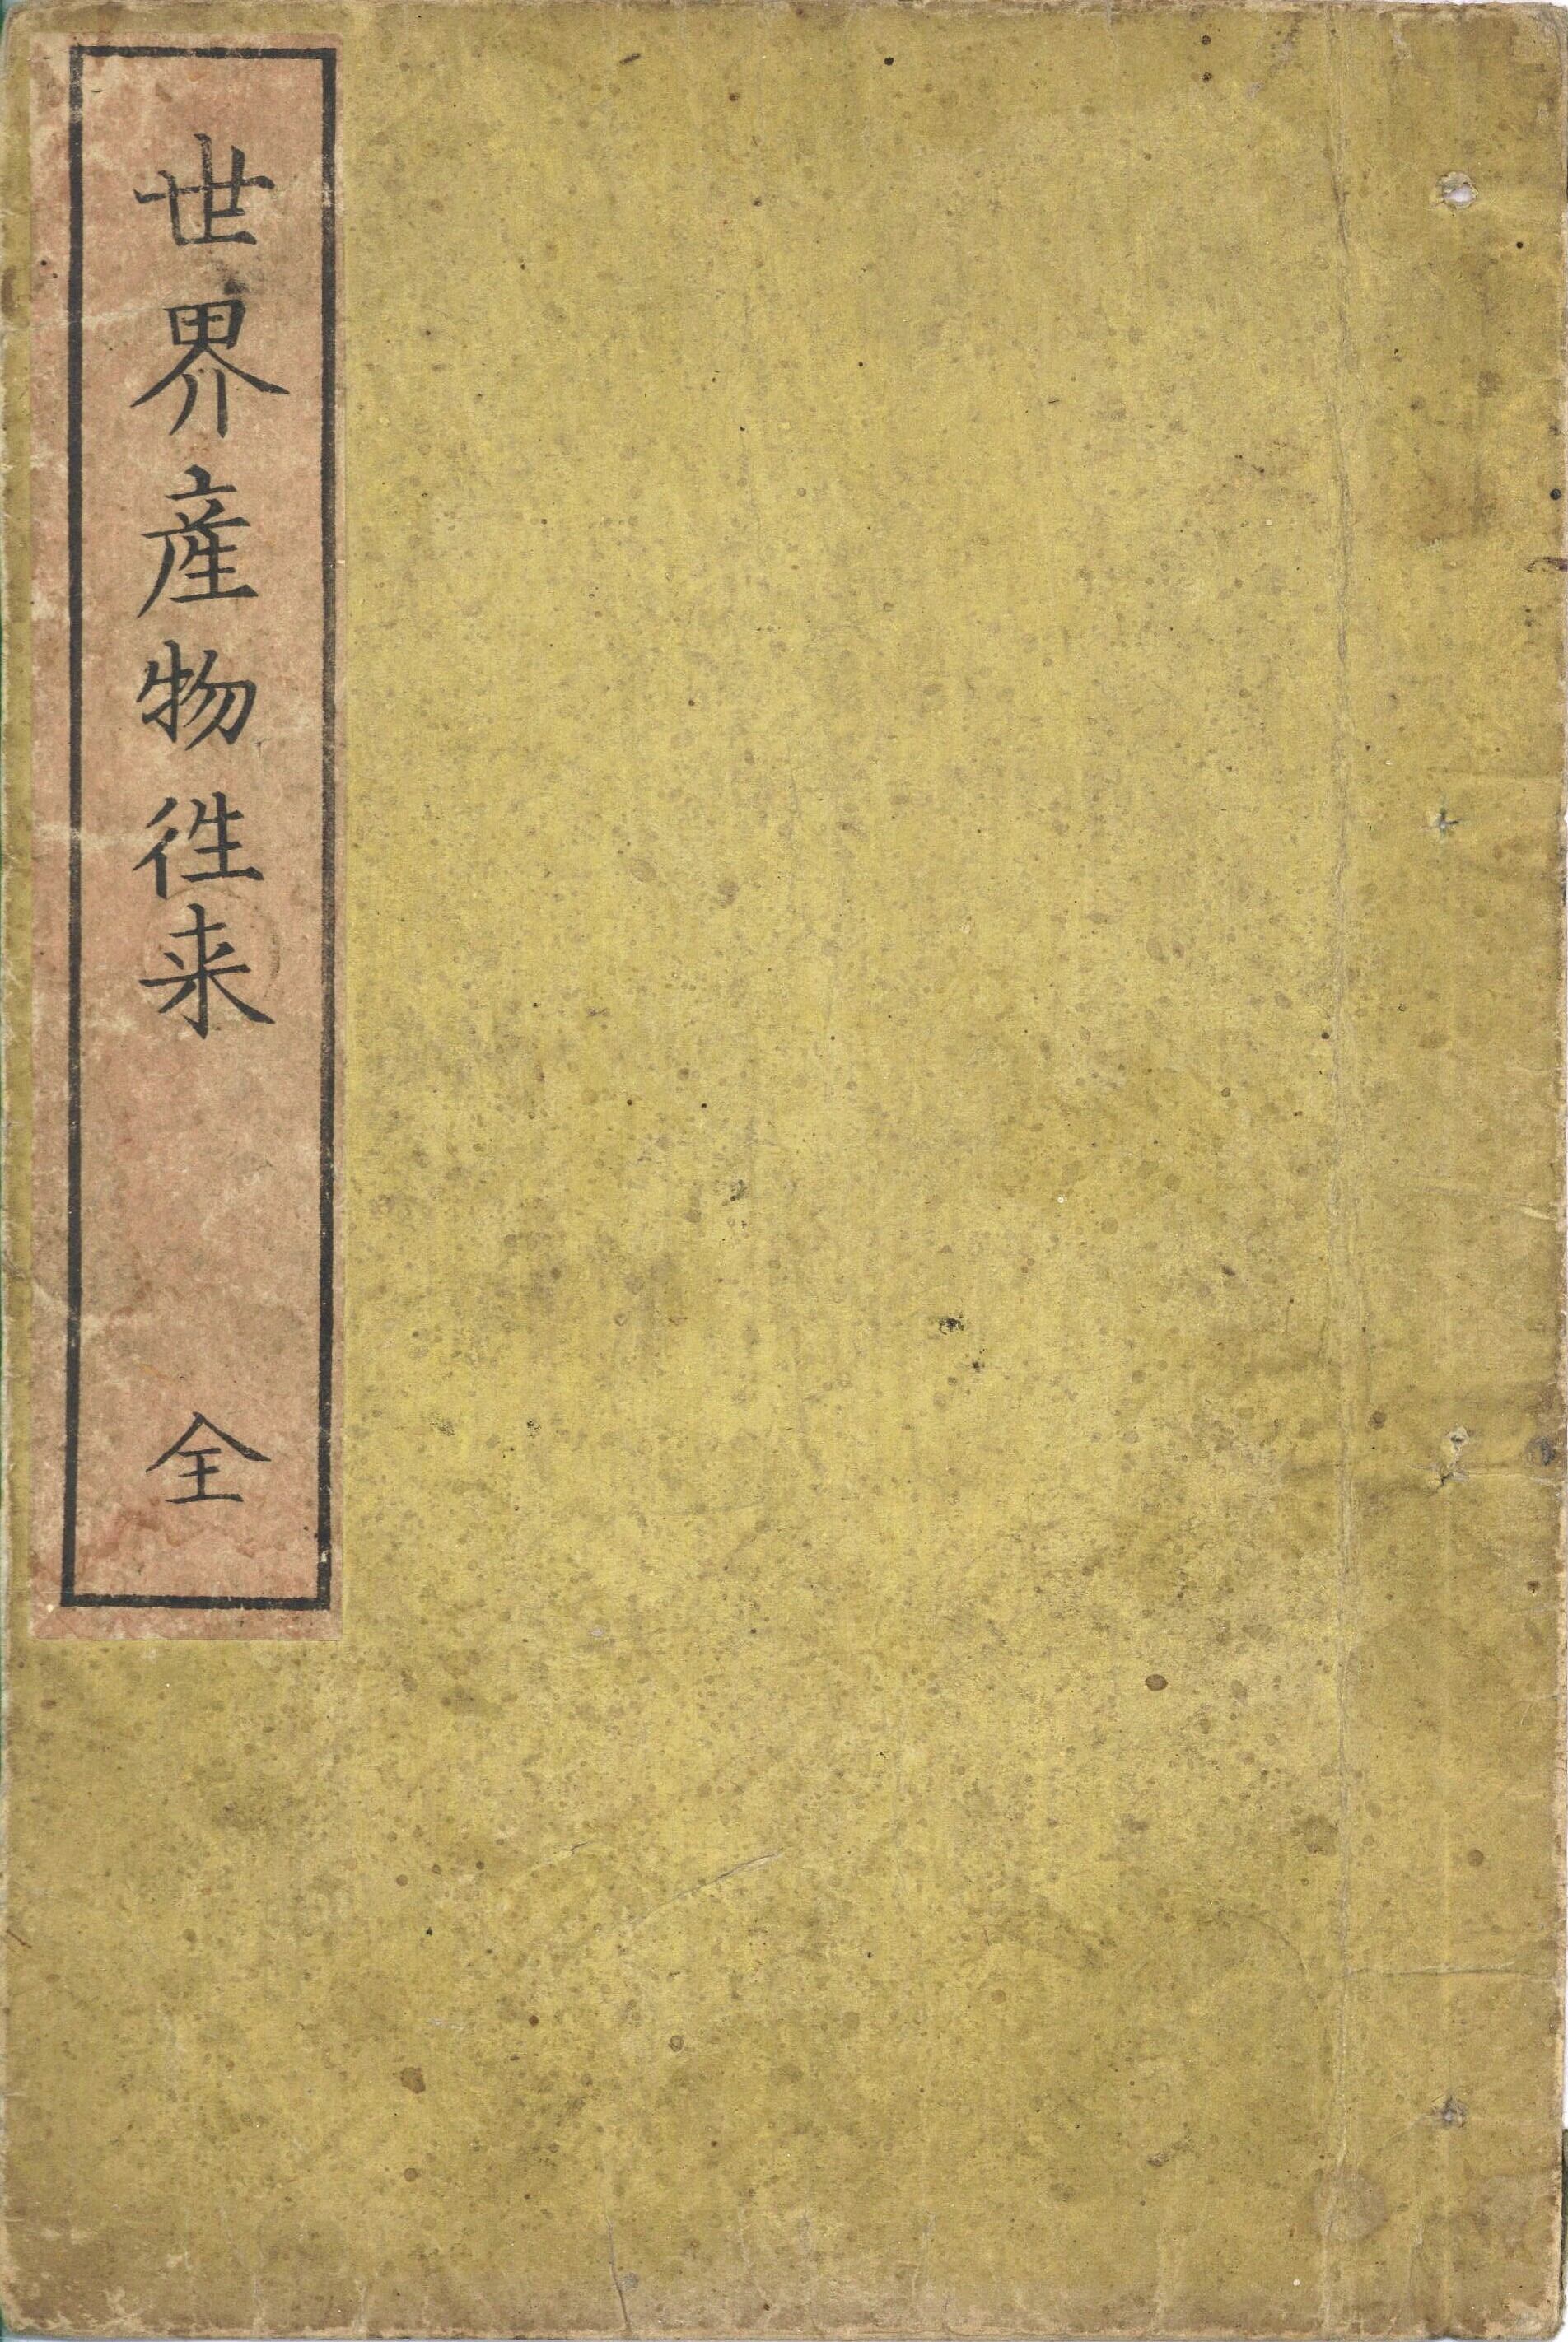 世界産物徃来 全